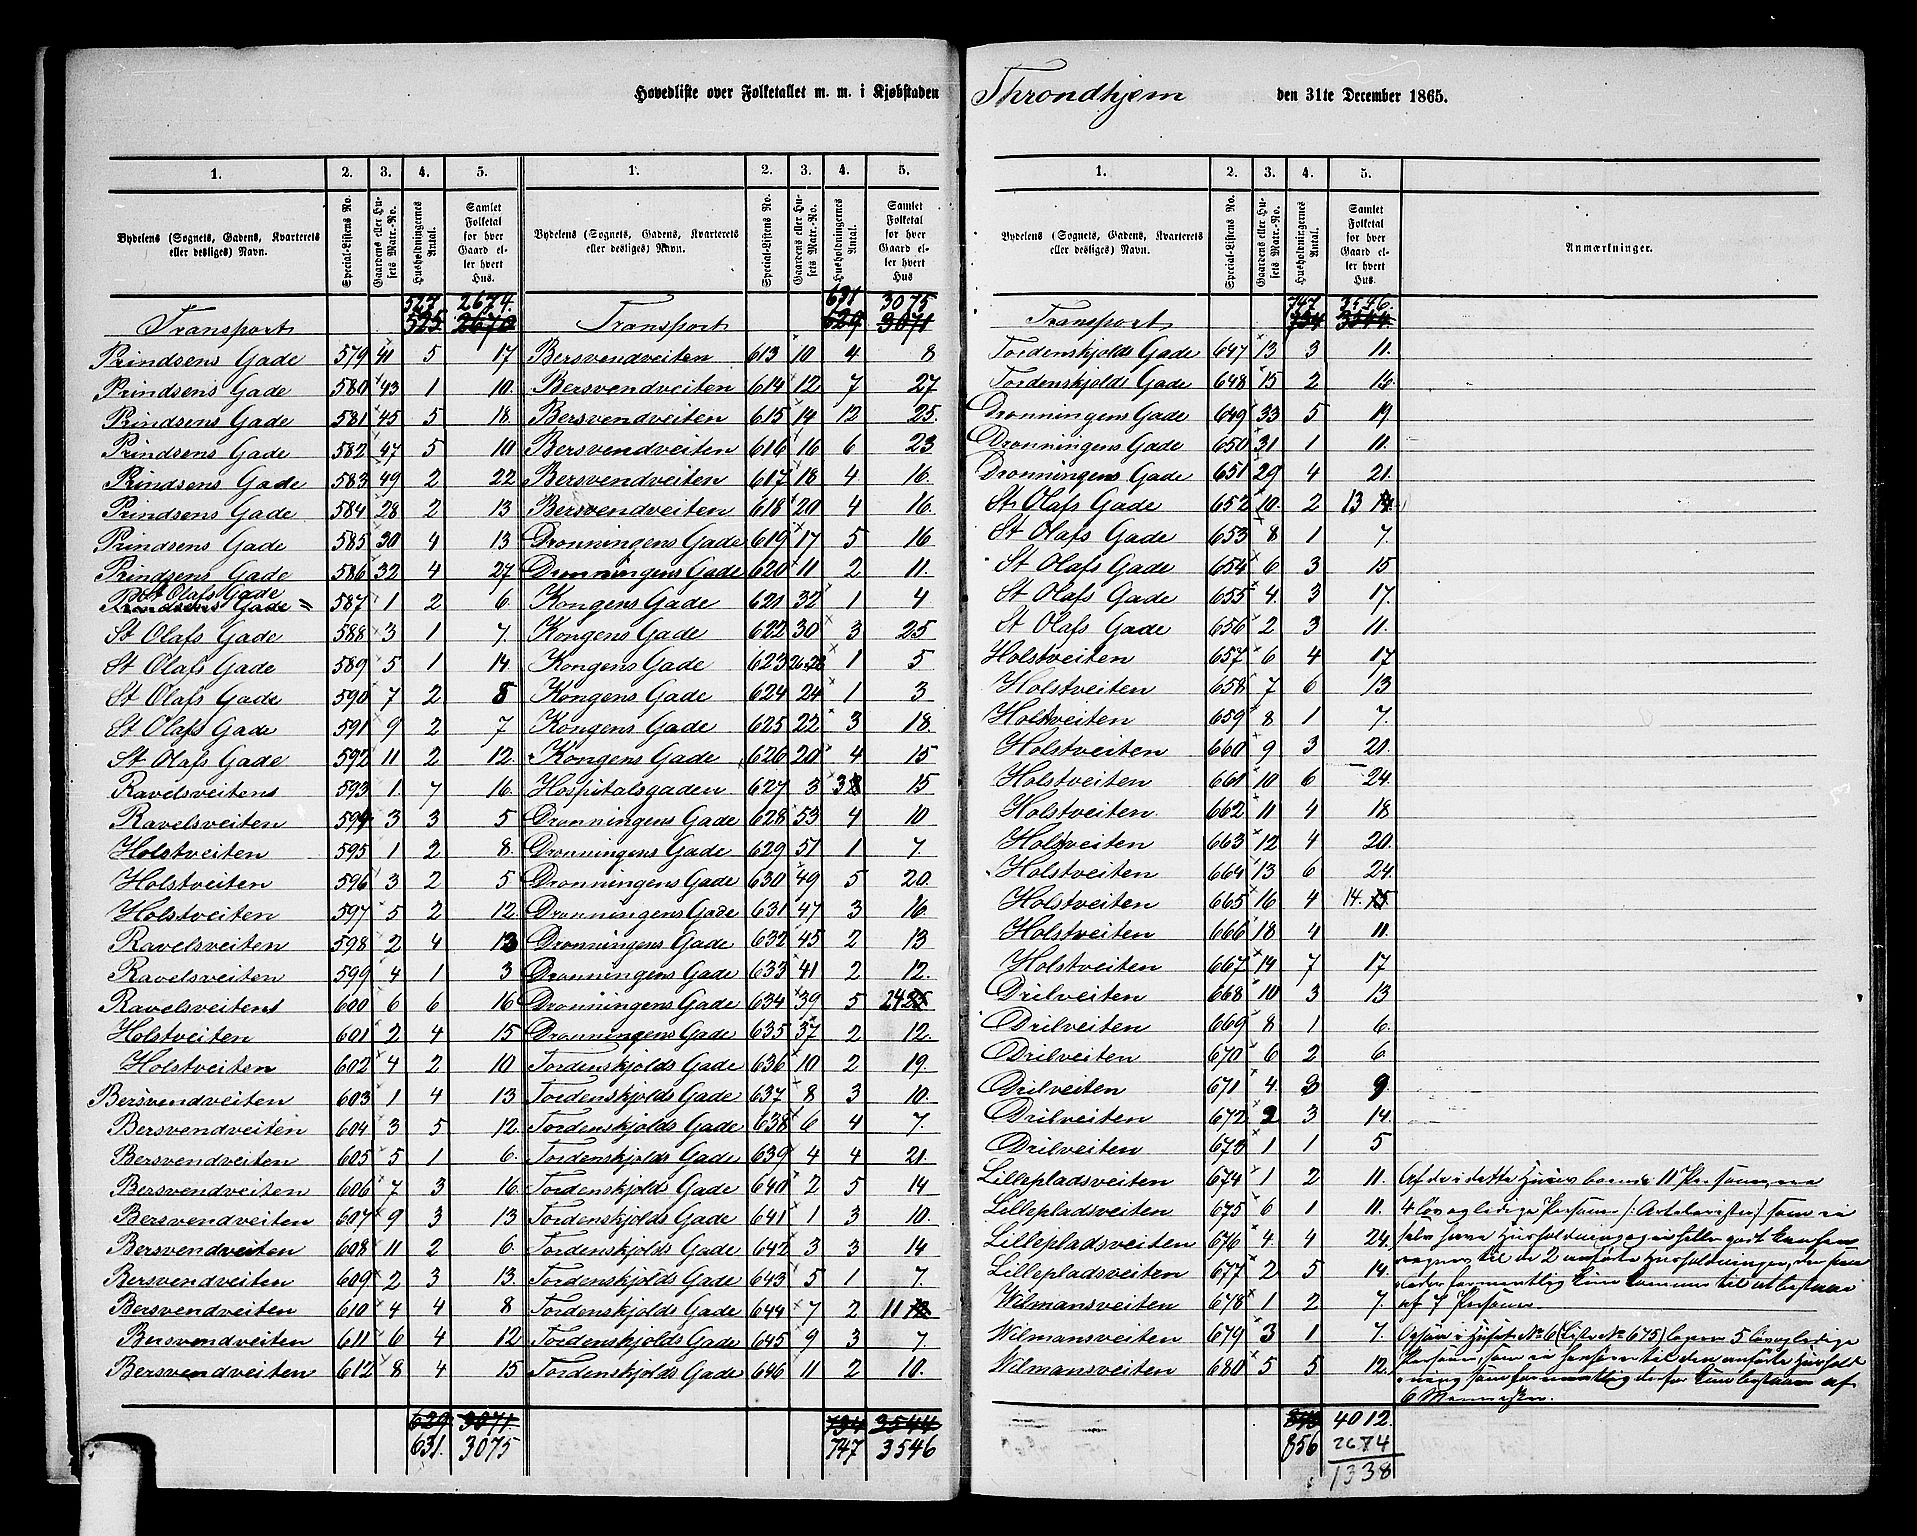 Hovedliste over Folketallet m. m. i Kjøbstaden Throndhjem den 31te December 1865.
1. 2. 3. 4. 5. 1. 2. 3. 4. 5.
Bydelens (Sognets, Gadens, Kvarterets eller desliges) Navn. Special-Listens No. Gaardens eller Husets Matr.-No. Husholdningernes Antal. Samlet Folketal for hver Gaard eller hvert Hus. Bydelens (Sognets, Gadens, Kvarterets eller desliges) Navn. Special-Listens No. Gaardens eller Husets Matr.-No. Husholdningernes Antal. Samlet Folketal for hver Gaard eller hvert Hus
527 2674. 631 3075
Transport 525 2670 Transport 629 3071
Prindsens Gade 579 41 5 17 Bersvendveiten 613 10 4 8
Prindsens Gade 580 43 1 10. Bersvendveiten 614 12 7 27
Prindsens Gade 581 45 5 18. Bersvendveiten 615 14 12 25.
Prindsens Gade 582 47 5 10 Bersvendveiten 616 16 6 23
Prindsens Gade 583 49 2 22 Bersvendveiten 617 18 4 16.
Prindsens Gade 584 28 2 13 Bersvendveiten 618 20 4 16.
Prindsens Gade 585 30 4 13 Dronningens Gade 619 17 5 16
Prindsens Gade 586 32 4 27 Dronningens Gade 620 11 2 11.
St Olafs Gade
Prindsens Gade 587 1 2 6. Kongens Gade 621 32 1 4
St Olafs Gade 588 3 1 7. Kongens Gade 622 30 3 25
St Olafs Gade 589 5 1 14 Kongens Gade 623 26.28 1 5
St Olafs Gade 590 7 2 8 Kongens Gade 624 24 1 3
St Olafs Gade 591 9 2 7 Kongens Gade 625 22 3 18.
St Olafs Gade 592 11 2 12 Kongens Gade 626 20 4 15
Ravelsveiten 593 1. 7 16. Hospitalsgaden 627 3 3 15
Ravelsveiten 594 3 3 5 Dronningens Gade 628 53 4 10
Holstveiten 595 1 2 8. Dronningens Gade 629 51 1 7.
Holstveiten 596 3 2 5 Dronningens Gade 630 49 5 20.
Holstveiten 597 5 2 12. Dronningens Gade 631 47 3 16.
Ravelsveiten 598 2 4 13 Dronningens Gade 632 45 2 13
Ravelsveiten 599 4 1 3 Dronningens Gade 633 41 2 12.
Ravelsveiten 600 6 6 16 Dronningens Gade 634 39 5 24 25
Holstveiten 601 2 4 15 Dronningens Gade 635 37 2 12.
Holstveiten 602 4 2 10 Tordenskjolds Gade 636 10 2 19.
Bersvendveiten 603 1 4 13 Tordenskjolds Gade 637 8 3 10.
Bersvendveiten 604 3 5 12. Tordenskjolds Gade 638 6 4 7.
Bersvendveiten 605 5 1 6. Tordenskjolds Gade 639 4 4 21.
Bersvendveiten 606 7 3 16. Tordenskjolds Gade 640 2 5 14
Bersvendveiten 607 9 3 13 Tordenskjolds Gade 641 1 3 10.
Bersvendveiten 608 11 2 6. Tordenskjolds Gade 642 3 3 14
Bersvendveiten 609 2 3 13. Tordenskjolds Gade 643 5 1 7.
Bersvendveiten 610 4 4 8 Tordenskjolds Gade 644 7 2 11
Bersvendveiten 611 6 4 12 Tordenskjolds Gade 645 9 3 7.
Bersvendveiten 612 8 4 15 Tordenskjolds Gade 646 11 2 10.
629 3071. 734 3544
631. 3075 747 3546
1. 2. 3. 4. 5.
Bydelens (Sognets, Gadens, Kvarterets eller desliges) Navn. Special-Listens No. Gaardens eller Husets Matr.-No. Husholdningernes Antal. Samlet Folketal for hver Gaard eller hvert Hus. Anmærkninger.
747 3546.
Transport 734 3544
Tordenskjolds Gade 647 13 3 11.
Tordenskjolds Gade 648 15 2 16
Dronningens Gade 649 33 5 19
Dronningens Gade 650 31 1 11.
Dronningens Gade 651 29 4 21.
St. Olafs Gade 652 10. 2 13 14
St Olafs Gade 653 8 1 7.
St Olafs Gade 654 6 3 15
St Olafs Gade 655 4. 3 17.
St Olafs Gade 656 2 3 11.
Holstveiten 657 6 4 17
Holstveiten 658 7 6 13
Holstveiten 659 8 1 7.
Holstveiten 660 9 3 20.
Holstveiten 661 10 6 24.
Holstveiten 662 11 4 18
Holstveiten 663 12 4 20.
Holstveiten 664 13 6 24
Holstveiten 665 16 4 14. 15
Holstveiten 666 18 4 11.
Holstveiten 667 14 7 17
Drilveiten 668 10 3 13
Drilveiten 669 8 1 6.
Drilveiten 670 6 2 6
Drilveiten 671 4. 3 9.
Drilveiten 672 2 3 14.
Drilveiten 673 1 1 5
Lillepladsveiten 674 1 2 11. Af de i dette Huus boende 11 Personer, ere
Lillepladsveiten 675 6 1 11. 4 løse Personer som ei
Lillepladsveiten 676 4. 4 24. selv have Husholdning og
Lillepladsveiten 677 2 5 14. til de 2 anførte Husholdninger, der
Wilmansveiten 678 1 2 7. af 7 Personer.
Wilmansveiten 679 3 1 7. Huset No 6 (Liste No 675) 5
Wilmansveiten 680 5 5 12. Personer, som ei til den anførte
6 Mennesker.
4012.
856 2674
1338